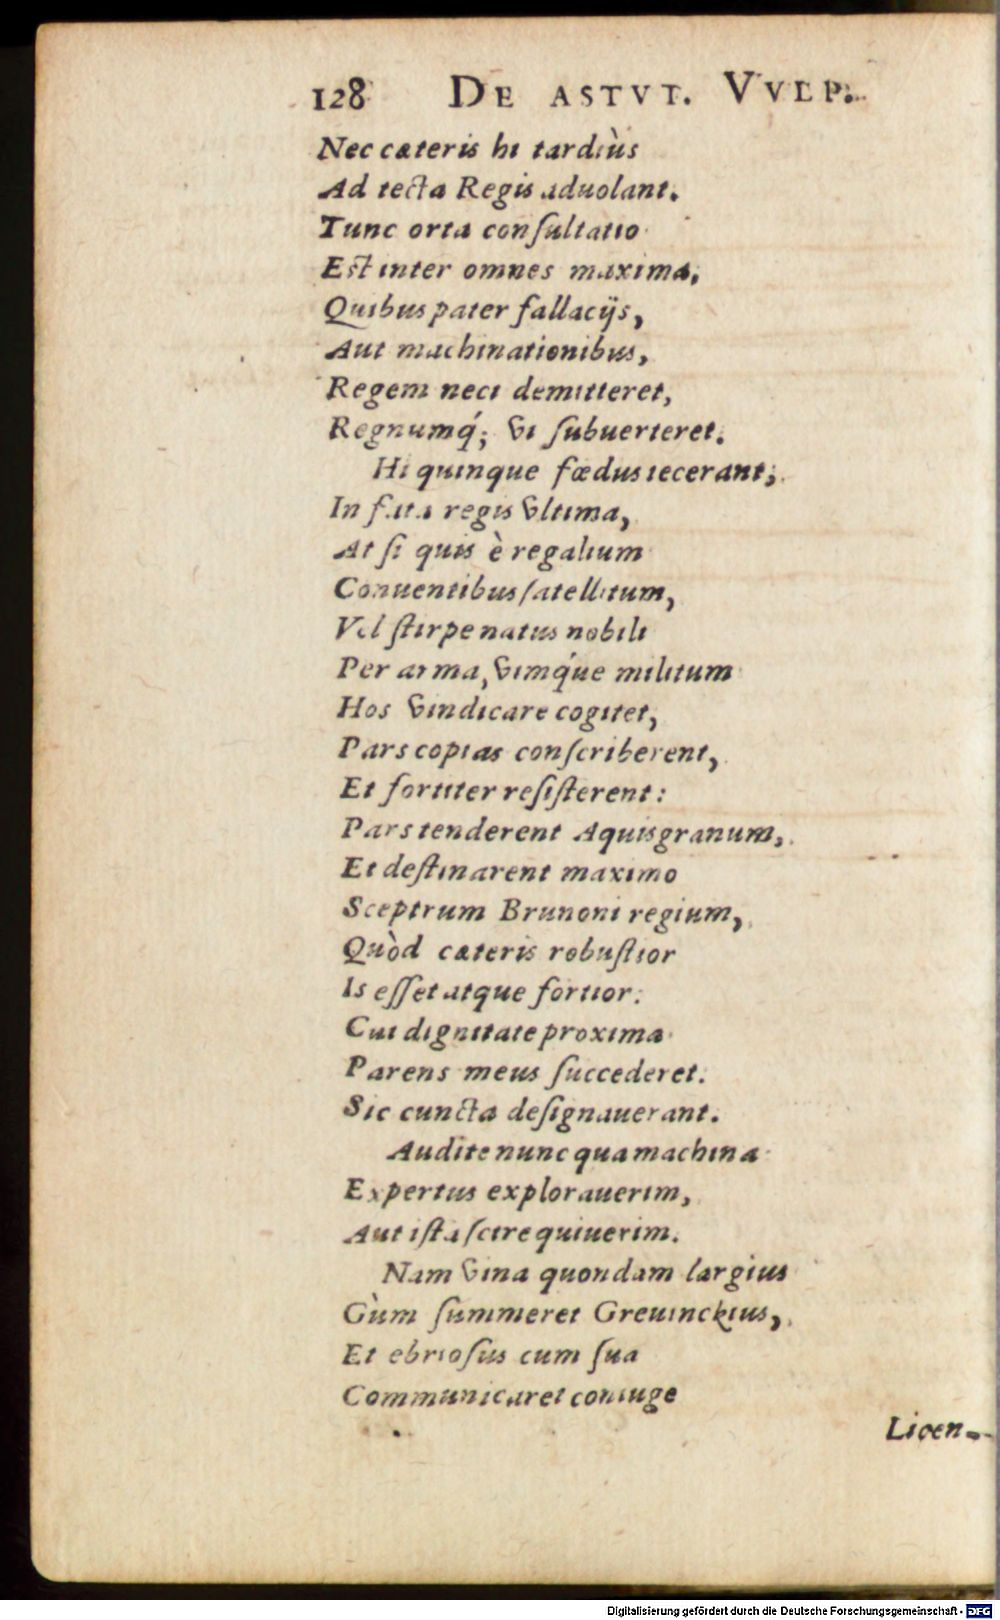 128 DE ASTVT. VVLP.
Nec cæteris hi tardiùs
Ad tecta Regis aduolant.
Tunc orta conſultatio
Est inter omnes maxima,
Quibus pater fallacijs,
Aut machinationibus,
Regem neci demitteret,
Regnumq́; vi ſubuerteret.
Hi quinque fœdus iecerant;
In fata regis vltima,
At ſi quis è regalium
Conuentibus ſatellitum,
Vel ſtirpe natus nobili
Per arma, vimq́ue militum
Hos vindicare cogitet,
Pars copias conſcriberent,
Et fortiter reſiſterent:
Pars tenderent Aquisgranum,
Et deſtinarent maximo
Sceptrum Brunoni regium,
Quòd cæteris robuſtior
Is eſſet atque fortior:
Cui dignitate proxima
Parens meus ſuccederet.
Sic cuncta deſignauerant.
Audite nunc qua machina
Expertus explorauerim,
Aut iſta ſcire quiuerim.
Nam vina quondam largius
Cùm ſummeret Greuinckius,
Et ebrioſus cum ſua
Communicaret coniuge
Licen-
Digitalisierung gefördert durch die Deutsche Forschungsgemeinschaft - DFG